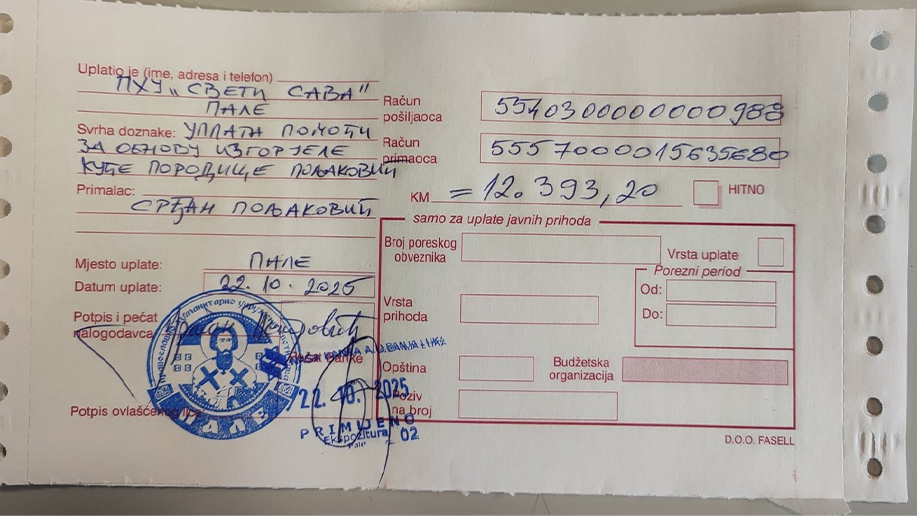 Uplatio je (ime, adresa i telefon)
ПХУ „СВЕТИ САВА"
ПАЛЕ
Svrha doznake: УПЛАТА ПОМОЋИ
ЗА ОБНОВУ ИЗГОРЈЕЛЕ
КУЋЕ ПОРОДИЦЕ ПОЉАКОВИЋ
Primalac:
СРЂАН ПОЉАКОВИЋ
Mjesto uplate: ПАЛЕ
Datum uplate: 22.10.2025
Potpis i pečat
nalogodavca
Potpis ovlašćenog lica
ПАЛЕ
Račun
pošiljaoca 5540300000000988
Račun
primaoca 5557000015635680
KM =12.393,20 HITNO
samo za uplate javnih prihoda
Broj poreskog
obveznika
Vrsta uplate
Porezni period
Od:
Do:
Vrsta
prihoda
Opština
Budžetska
organizacija
Poziv
na broj
Pečat banke
22. 10. 2025
PRIMLJENO
Ekspozitura 02
Pale
D.O.O. FASELL